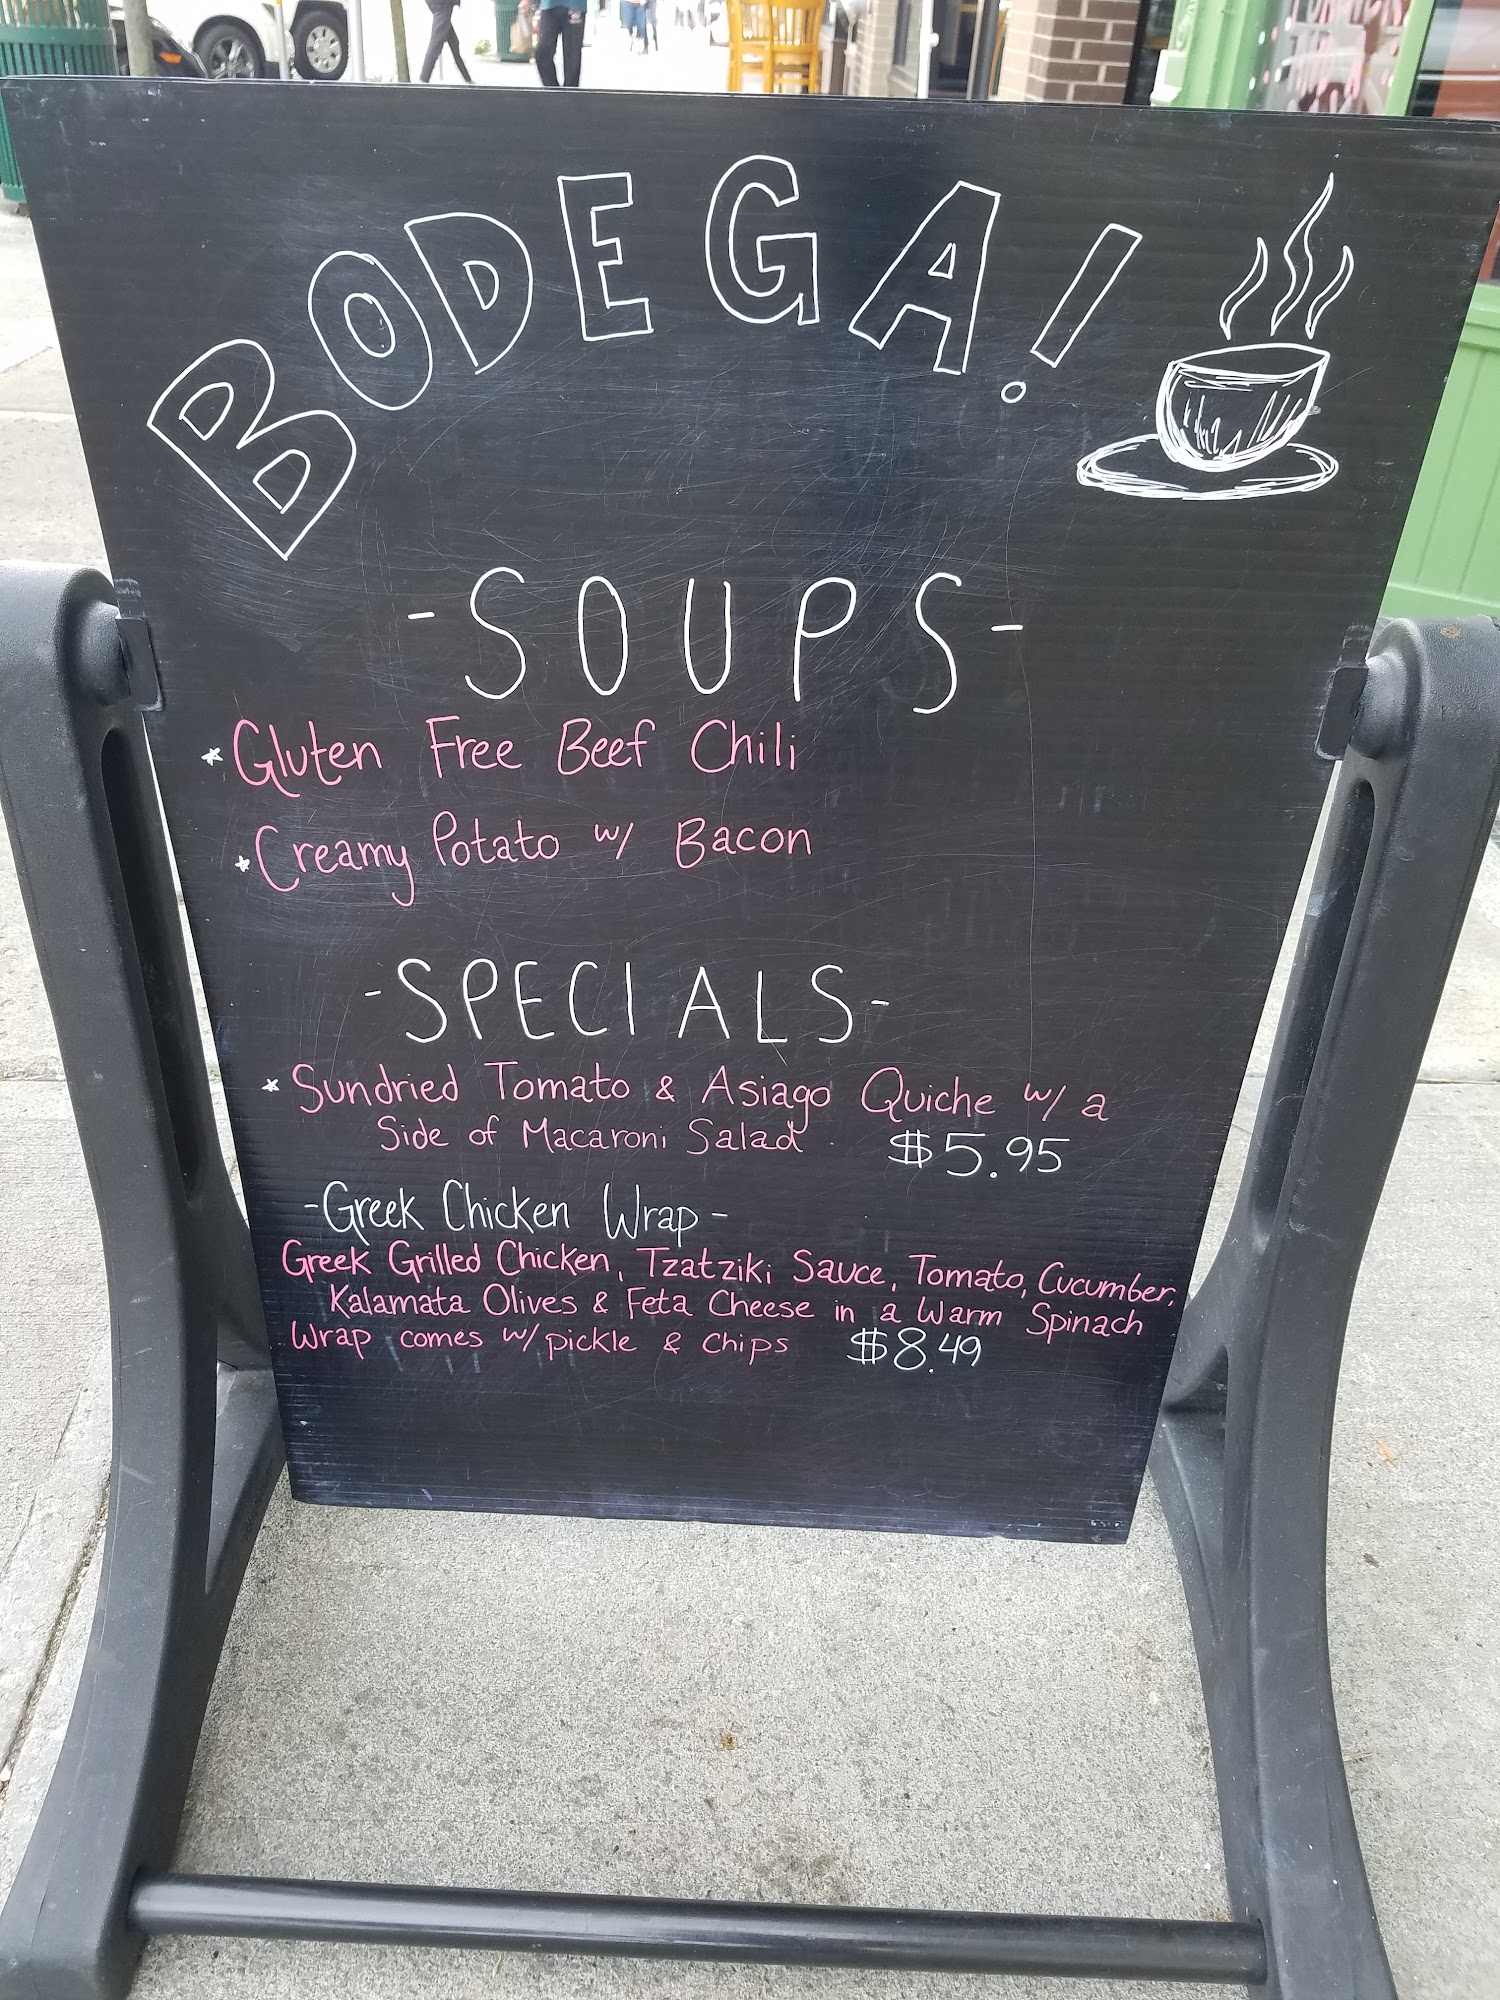 BODEGA!
-SOUPS-
* Gluten Free Beef Chili
* Creamy Potato w/ Bacon
-SPECIALS-
* Sundried Tomato & Asiago Quiche w/ a
Side of Macaroni Salad $5.95
-Greek Chicken Wrap-
Greek Grilled Chicken, Tzatziki Sauce, Tomato, Cucumber,
Kalamata Olives & Feta Cheese in a Warm Spinach
Wrap comes w/ pickle & chips $8.49